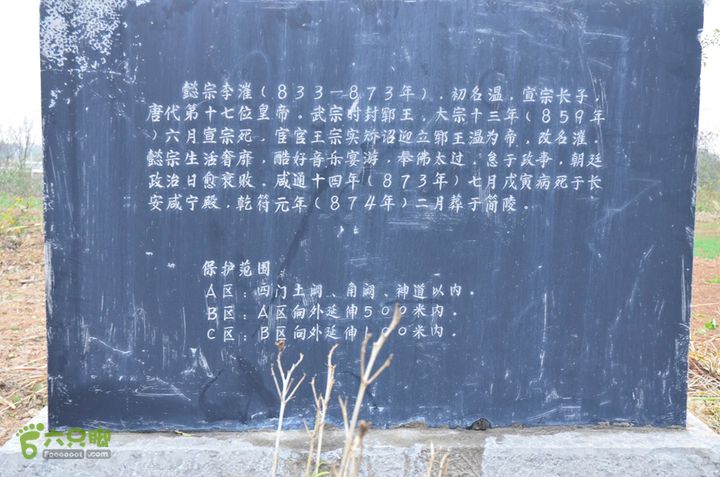 懿宗李漼(833—873年)，初名温，宣宗长子，
唐代第十七位皇帝。武宗时封郓王，大宗十三年(859年
)六月宣宗死，宦官王宗实矫诏迎立郓王温为帝，改名漼。
懿宗生活奢靡，酷好音乐宴游，奉佛太过，怠于政事，朝廷
政治日愈衰败。咸通十四年(873年)七月戊寅病死于长
安咸宁殿，乾符元年(874年)二月葬于简陵。
保护范围
A区：四门土阙、角阙、神道以内。
B区：A区向外延伸500米内。
C区：B区向外延伸 00米内。
六只脚
Foooooot.com